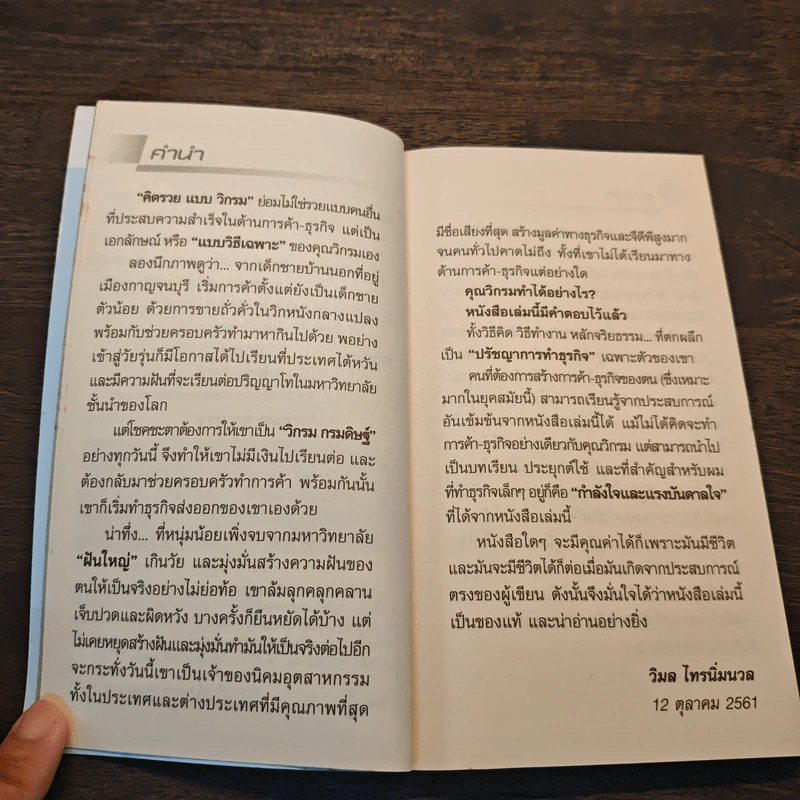 คำนำ
"คิดรวย แบบ วิกรม" ย่อมไม่ใช่รวยแบบคนอื่น
ที่ประสบความสำเร็จในด้านการค้า-ธุรกิจ แต่เป็น
เอกลักษณ์ หรือ "แบบวิธีเฉพาะ" ของคุณวิกรมเอง
ลองนึกภาพดูว่า... จากเด็กชายบ้านนอกที่อยู่
เมืองกาญจนบุรี เริ่มการค้าตั้งแต่ยังเป็นเด็กชาย
ตัวน้อย ด้วยการขายถั่วคั่วในวิกหนังกลางแปลง
พร้อมกับช่วยครอบครัวทำมาหากินไปด้วย พอย่าง
เข้าสู่วัยรุ่นก็มีโอกาสได้ไปเรียนที่ประเทศไต้หวัน
และมีความฝันที่จะเรียนต่อปริญญาโทในมหาวิทยาลัย
ชั้นนำของโลก
แต่โชคชะตาต้องการให้เขาเป็น "วิกรม กรมดิษฐ์"
อย่างทุกวันนี้ จึงทำให้เขาไม่มีเงินไปเรียนต่อ และ
ต้องกลับมาช่วยครอบครัวทำการค้า พร้อมกันนั้น
เขาก็เริ่มทำธุรกิจส่งออกของเขาเองด้วย
น่าทึ่ง... ที่หนุ่มน้อยเพิ่งจบจากมหาวิทยาลัย
"ฝันใหญ่" เกินวัย และมุ่งมั่นสร้างความฝันของ
ตนให้เป็นจริงอย่างไม่ย่อท้อ เขาล้มลุกคลุกคลาน
เจ็บปวดและผิดหวัง บางครั้งก็ยืนหยัดได้บ้าง แต่
ไม่เคยหยุดสร้างฝันและมุ่งมั่นทำมันให้เป็นจริงต่อไปอีก
จะกระทั่งวันนี้เขาเป็นเจ้าของนิคมอุตสาหกรรม
ทั้งในประเทศและต่างประเทศที่มีคุณภาพที่สุด
มีชื่อเสียงที่สุด สร้างมูลค่าทางธุรกิจและจีดีพีสูงมาก
จนคนทั่วไปคาดไม่ถึง ทั้งที่เขาไม่ได้เรียนมาทาง
ด้านการค้า-ธุรกิจแต่อย่างใด
คุณวิกรมทำได้อย่างไร?
หนังสือเล่มนี้มีคำตอบไว้แล้ว
ทั้งวิธีคิด วิธีทำงาน หลักจริยธรรม... ที่ตกผลึก
เป็น "ปรัชญาการทำธุรกิจ" เฉพาะตัวของเขา
คนที่ต้องการสร้างการค้า-ธุรกิจของตน (ซึ่งเหมาะ
มากในยุคสมัยนี้) สามารถเรียนรู้จากประสบการณ์
อันเข้มข้นจากหนังสือเล่มนี้ได้ แม้ไม่ได้คิดจะทำ
การค้า-ธุรกิจอย่างเดียวกับคุณวิกรม แต่สามารถนำไป
เป็นบทเรียน ประยุกต์ใช้ และที่สำคัญสำหรับผม
ที่ทำธุรกิจเล็กๆ อยู่ก็คือ "กำลังใจและแรงบันดาลใจ"
ที่ได้จากหนังสือเล่มนี้
หนังสือใดๆ จะมีคุณค่าได้ก็เพราะมันมีชีวิต
และมันจะมีชีวิตได้ก็ต่อเมื่อมันเกิดจากประสบการณ์
ตรงของผู้เขียน ดังนั้นจึงมั่นใจได้ว่าหนังสือเล่มนี้
เป็นของแท้ และน่าอ่านอย่างยิ่ง
วิมล ไทรนิ่มนวล
12 ตุลาคม 2561